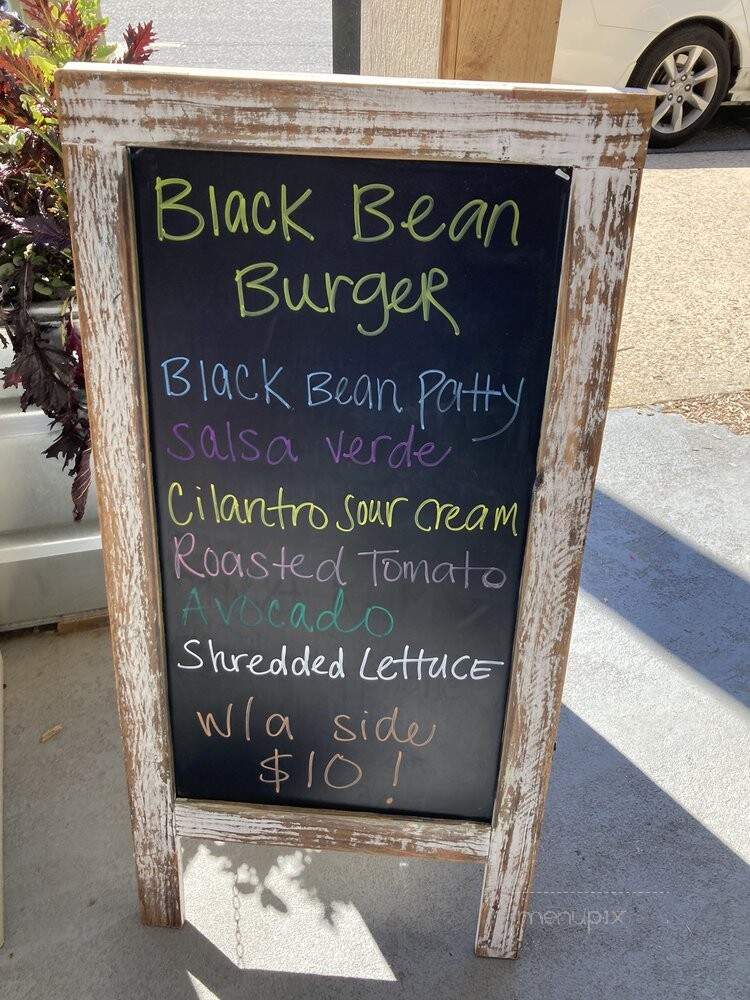 Black Bean
Burger
Black Bean Patty
Salsa verde
Cilantro sour cream
Roasted Tomato
Avocado
Shredded Lettuce
w/a side
$10!
menupix